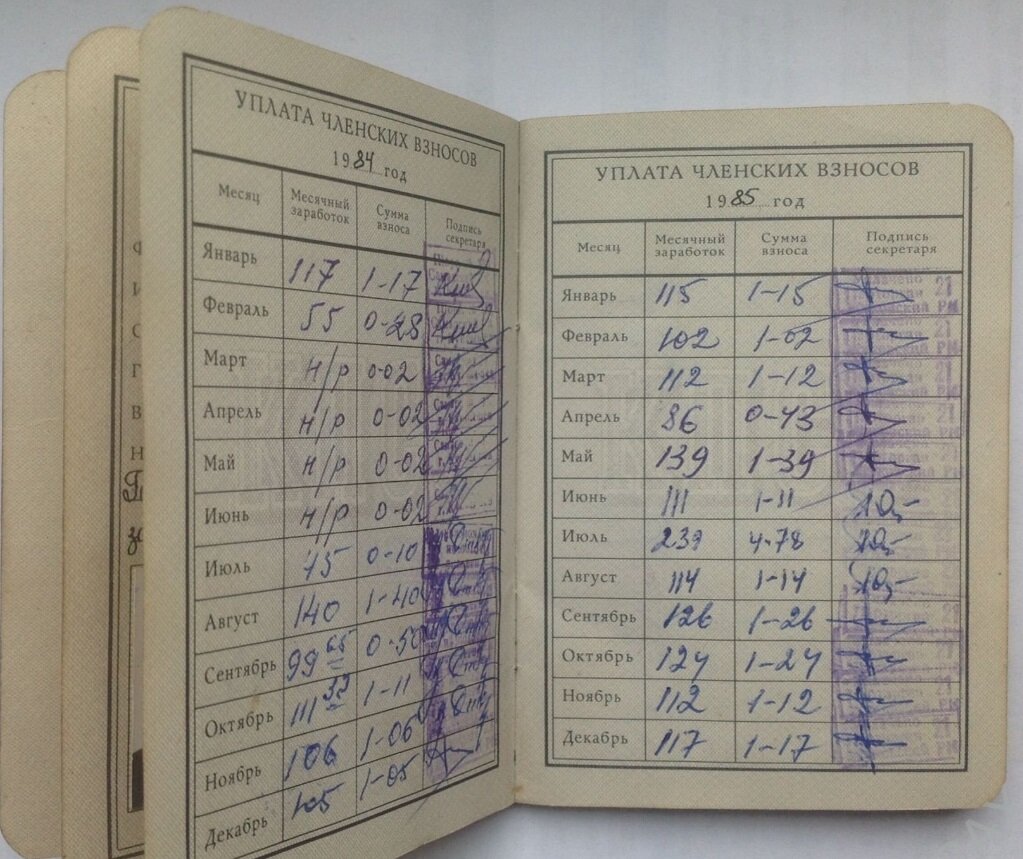 УПЛАТА ЧЛЕНСКИХ ВЗНОСОВ
1984 год
Месяц Месячный заработок Сумма взноса Подпись секретаря
Январь 117 1-17
Февраль 55 0-28
Март н/р 0-02
Апрель н/р 0-02
Май н/р 0-02
Июнь н/р 0-02
Июль 15 0-10
Август 140 1-40
Сентябрь 99 65 0-50
Октябрь 111 33 1-11
Ноябрь 106 1-06
Декабрь 105 1-05
УПЛАТА ЧЛЕНСКИХ ВЗНОСОВ
1985 год
Месяц Месячный заработок Сумма взноса Подпись секретаря
Январь 115 1-15
Февраль 102 1-02
Март 112 1-12
Апрель 86 0-43
Май 139 1-39
Июнь 111 1-11
Июль 239 4-78
Август 114 1-14
Сентябрь 126 1-26
Октябрь 124 1-24
Ноябрь 112 1-12
Декабрь 117 1-17